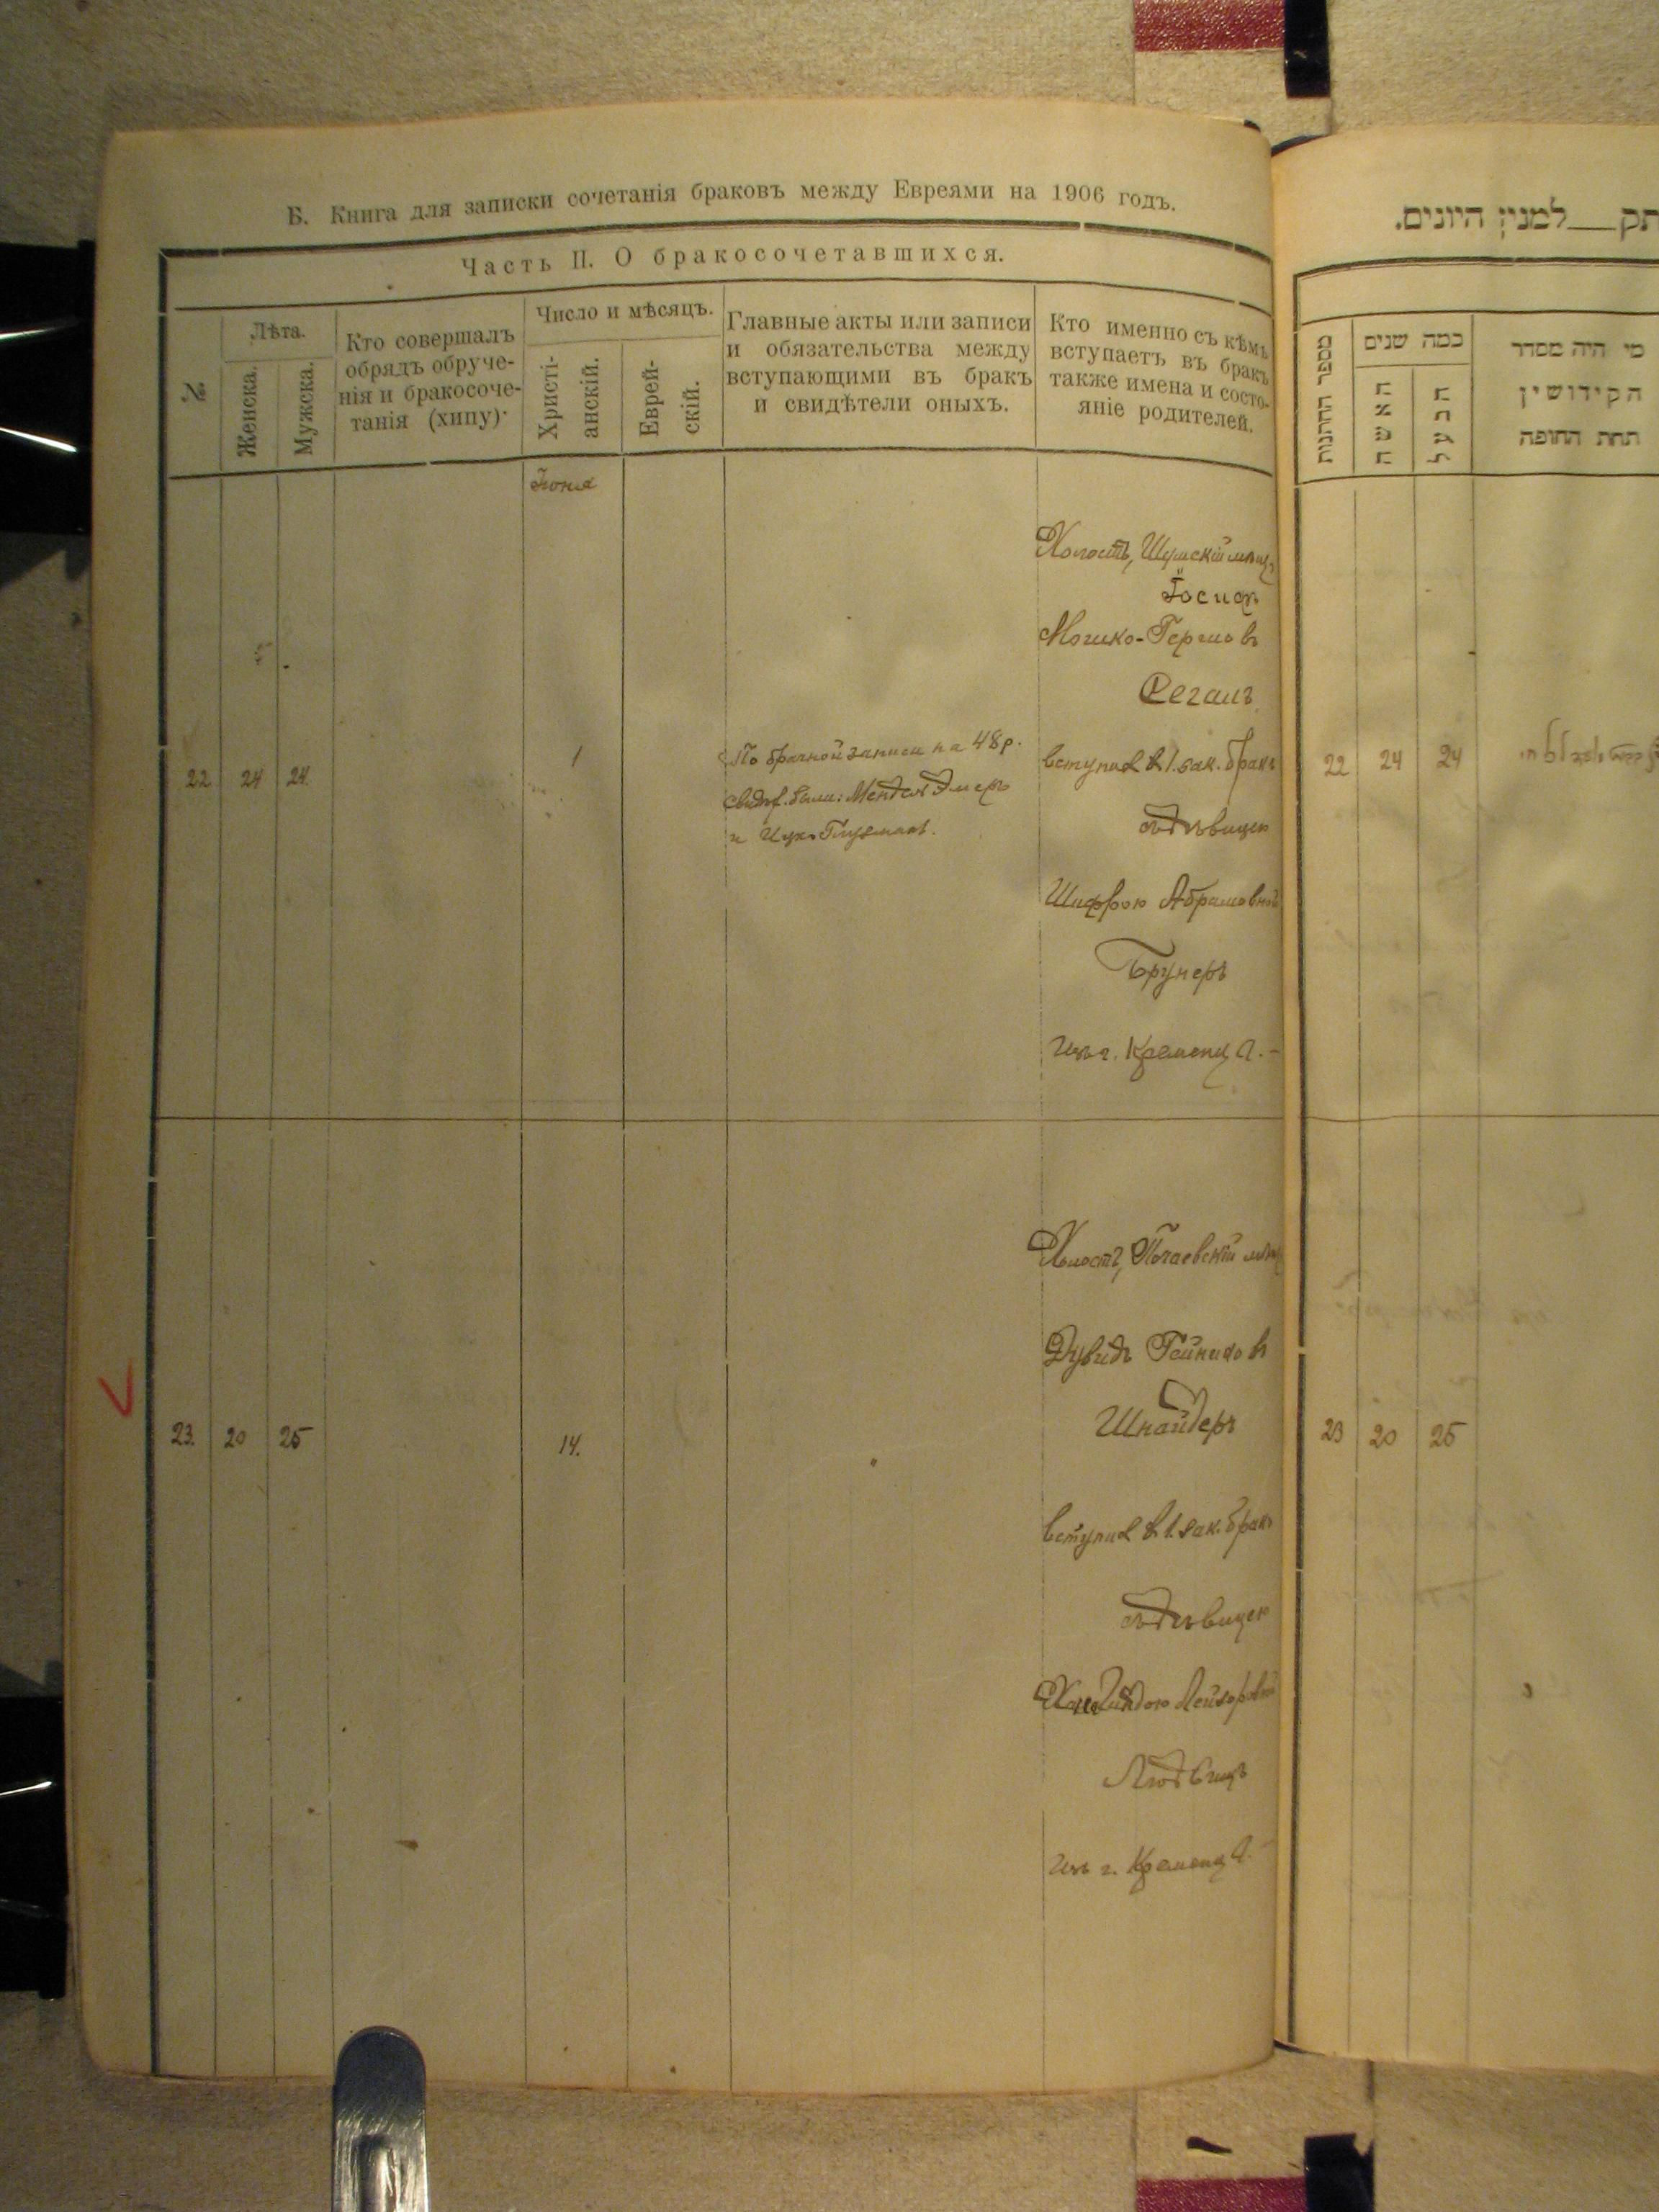 Б. Книга для записки сочетанія браковъ между Евреями на 1906 годъ.
Часть II. О бракосочетавшихся.
№
Лѣта.
Женска.
Мужска.
Кто совершалъ
обрядъ обруче-
нія и бракосоче-
танія (хипу)·
Число и мѣсяцъ.
Христі-
анскій.
Еврей-
скій.
Главные акты или записи
и обязательства между
вступающими въ бракъ
и свидѣтели оныхъ.
Кто именно съ кѣмъ
вступаетъ въ бракъ
также имена и состо-
яніе родителей.
Іюня
22 24 24. 1
По брачной записи на 48 р.
свидѣт. были: Мендель Эмеръ
и Ицко Глузманъ.
Холостъ, Шумскій мѣщ.
Іосифъ
Мошко-Гершовъ
Сегалъ
вступилъ в 1. зак. бракъ
съ дѣвицею
Шифрою Абрамовной
Брунеръ
изъ г. Кременца. –
23. 20 25 14.
Холостъ, Почаевскій мѣщ
Дувидъ Гейниховъ
Шнайдеръ
вступилъ в 1. зак. бракъ
съ дѣвицею
Лейзоровной
изъ г. Кременца. –
תק___למנין היונים.
מספר החתונות
כמה שנים
האשה
הבעל
מי היה מסדר
הקידושין
תחת החופה
22 24 24
23 20 25